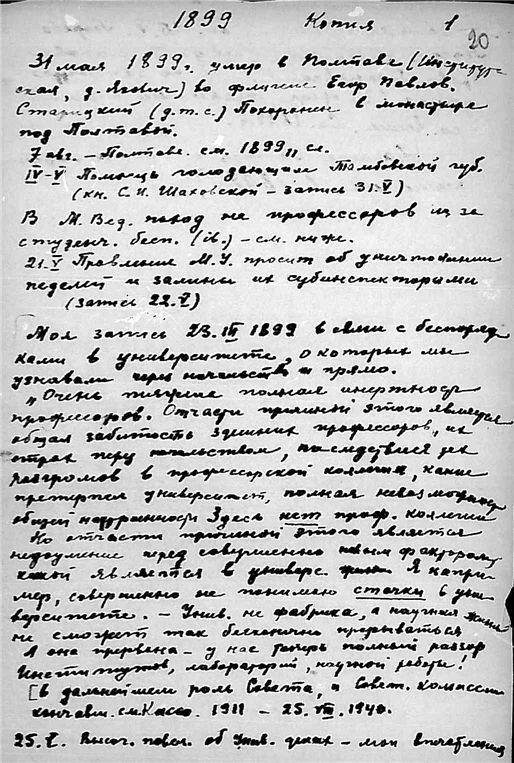 1899 Копия 1
20
31 мая 1899 г. умер в Полтаве (Институт-
ская, д. Ягович) во флигеле Егор Павлов.
Старицкий (д.т.с.) Похоронен в монастыре
под Полтавой.
7 авг. – Полтаве. см. 1899,, сл.
IV–V Помощь голодающим Тамбовской губ.
(кн. С. И. Шаховской – запись 31.V)
В М. Вед. поход на профессоров из за
студенч. бесп. (ib.) – см. ниже.
21.V Правление М. У. просит об уничтожении
педелей и замены их субинспекторами
(запись 22.V)
[Моя запись 23.III 1899 в связи с беспоряд-
ками в университете, о которых мы
узнавали через начальство и прямо.
"Очень тяжела полная инертность
профессоров. Отчасти причиной этого является
общая забитость здешних профессоров, их
страх перед начальством, последствия
разгромов в профессорской коллегии, какие
претерпел университет, полная невозможность
общей Здесь нет проф. коллегии
Но отчасти причиной этого является
недоумение перед совершенно новым фактором,
какой является в универс. жизни Я напри-
мер, совершенно не понимаю стачки в уни-
верситете. – Унив. не фабрика, а научная жизнь
не сможет так бесконечно прерываться
А она прервана – у нас теперь полный разгар
Институтов, лабораторий, научной работы!
[В дальнейшем роль Совета, и Совет. комиссии
см. Кассо. 1911 – 25.VII.1940.
25.V. Высоч. повел. об Унив. делах – мои впечатления